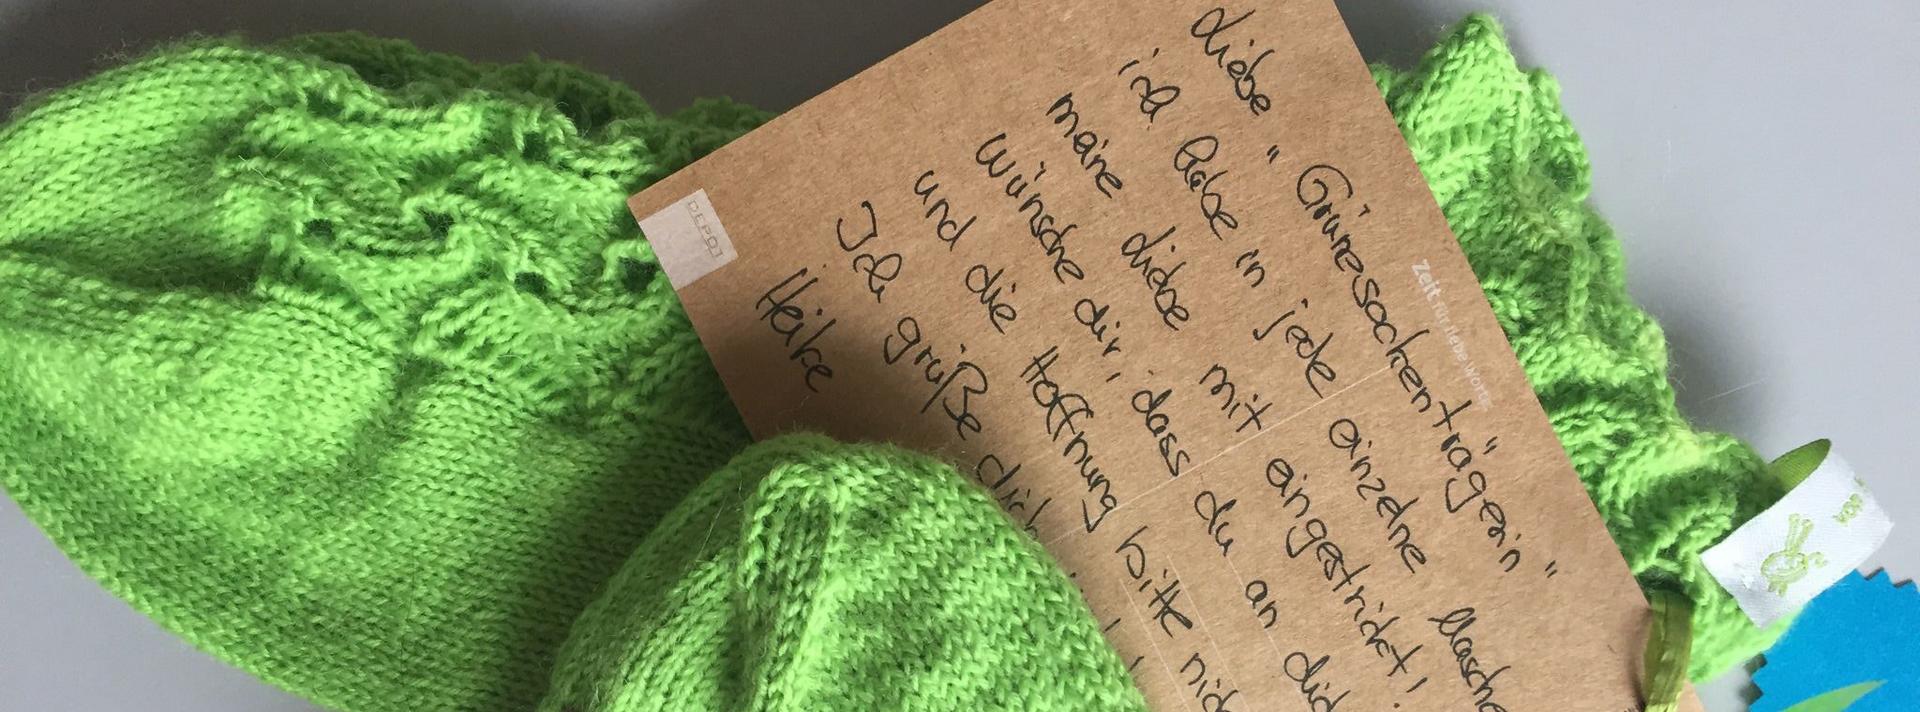 Liebe "Grünesockenträgerin"
ich habe in jede einzelne Masche
meine Liebe mit eingestrickt!
wünsche dir, dass du an dich
und die Hoffnung bitte
Ich grüße dich
Heike
DEPOT
Zeit für liebe Worte